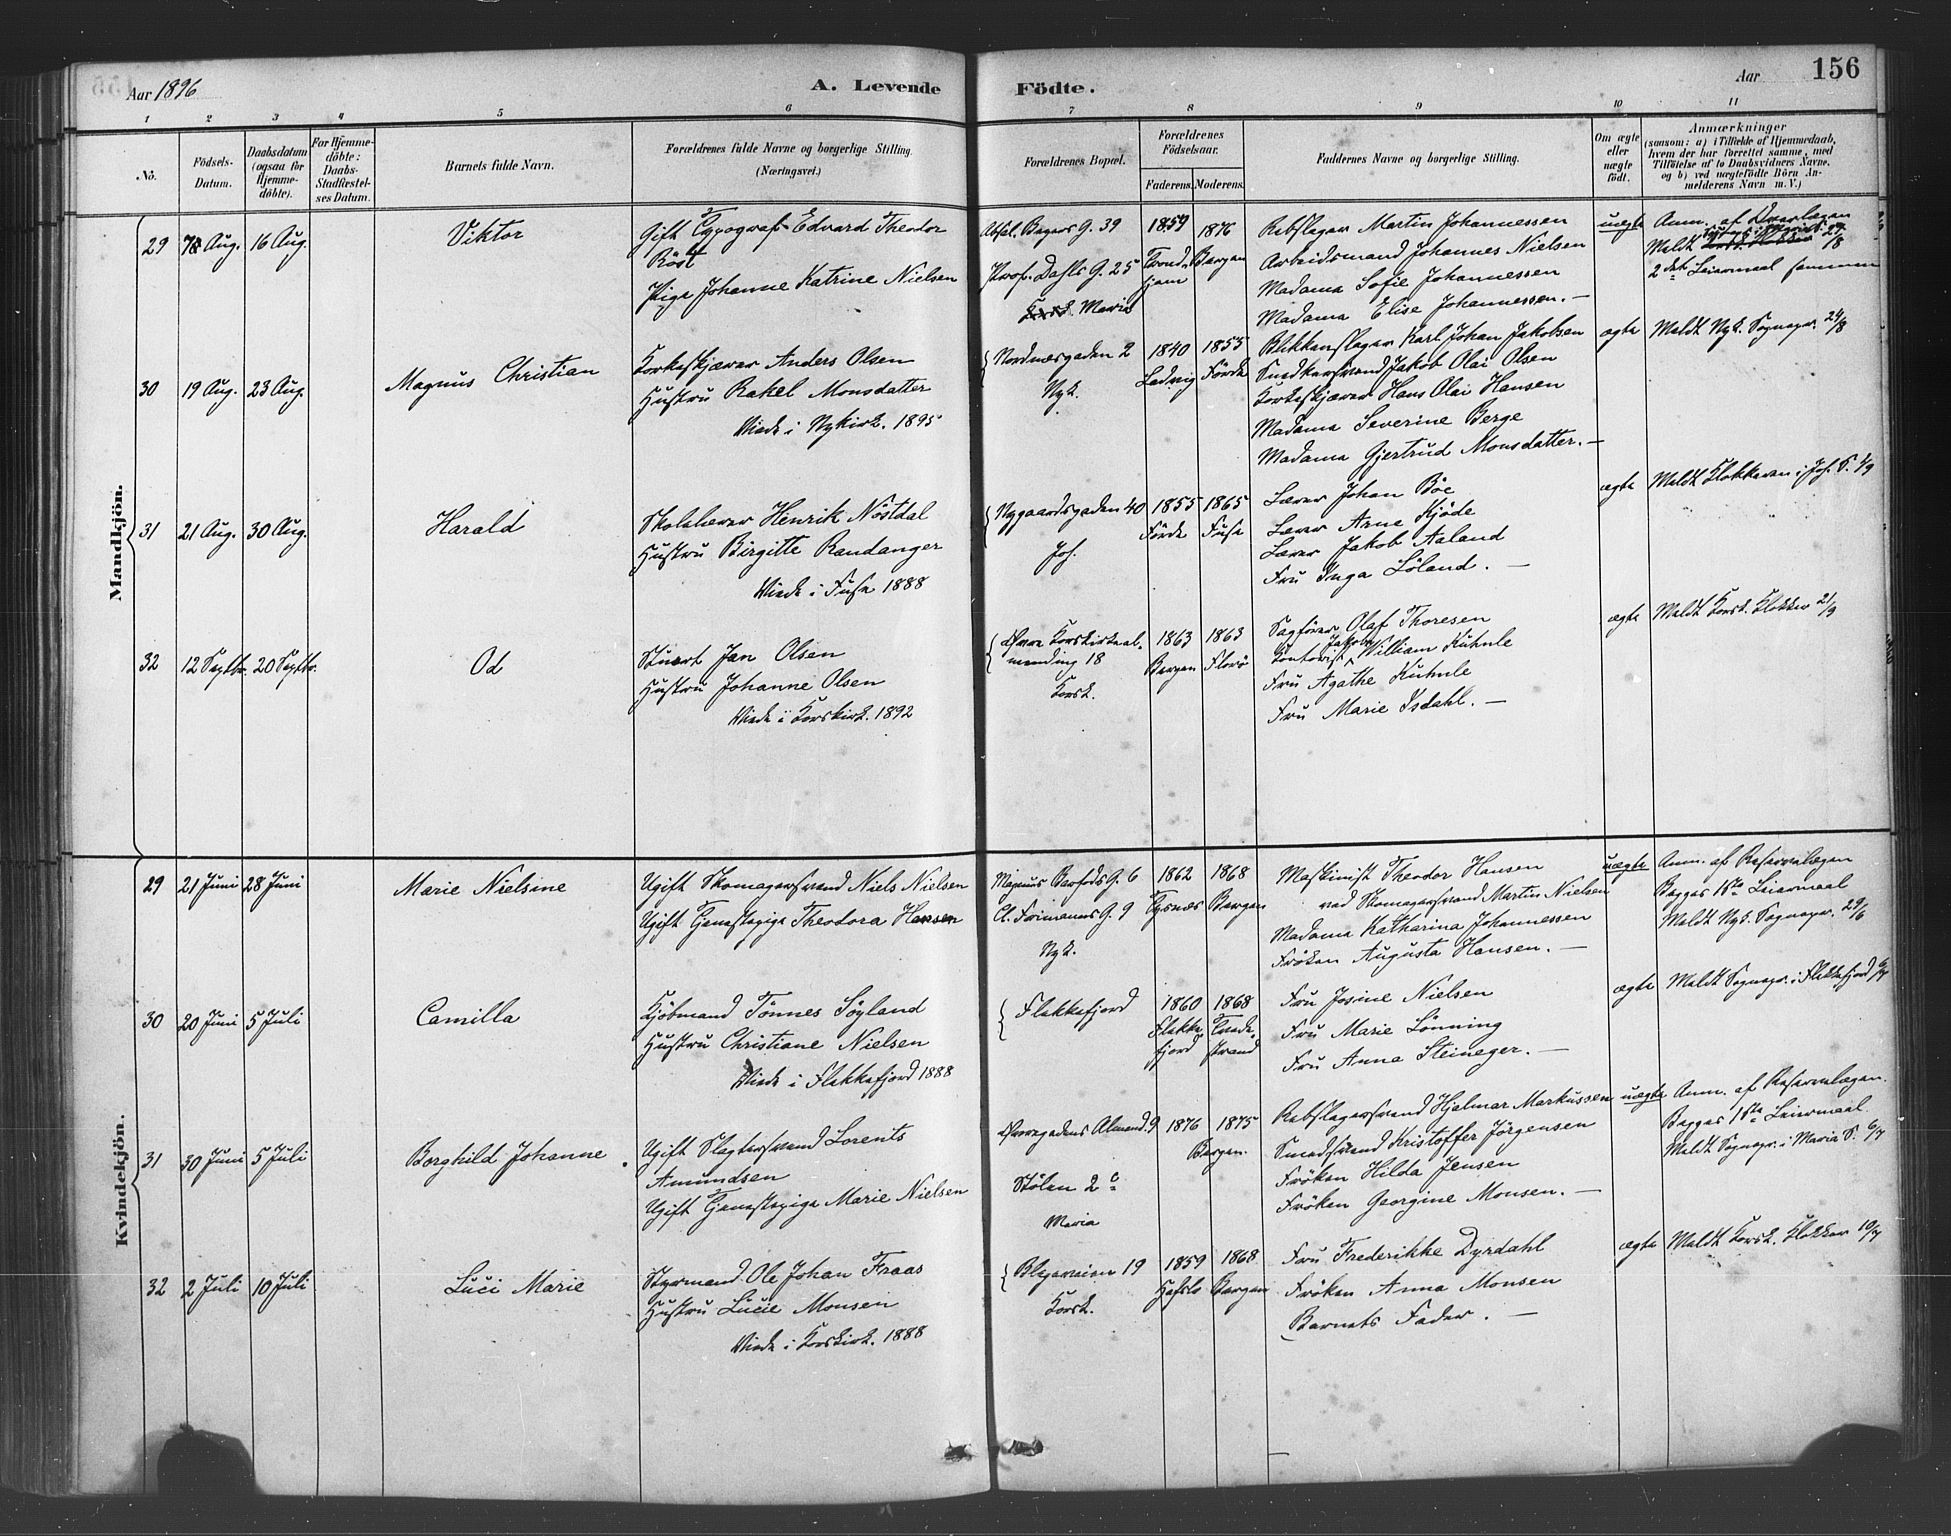 Aar 1896
A. Levende
Födte.
Aar
156
1 2 3 4 5 6 7 8 9 10 11
No.
Födsels-
Datum.
Daabsdatum
(ogsaa for
Hjemme-
döbte).
For Hjemme-
döbte:
Daabs-
Stadfæstel-
ses Datum.
Barnets fulde Navn.
Forældrenes fulde Navne og borgerlige Stilling.
(Næringsvei.)
Forældrenes Bopæl.
Forældrenes
Födselsaar.
Faderens. Moderens.
Faddernes Navne og borgerlige Stilling.
Om ægte
eller
uægte
födt.
Anmærkninger
(saasom: a) i Tilfælde af Hjemmedaab,
hvem der har forrettet samme, med
Tilföielse af to Daabsvidners Navne,
og b) ved uægtefödte Börn An-
melderens Navn m. V.)
Mandkjön.
29 Aug. 16 Aug.
Viktor
Gift Typograf Edvard Theodor
Röst
Pige Johanne Katrine Nielsen
Absal. Beyers G. 39
Prof. Dahls G. 25
Korsk. Maria
1859 1876
Trond- Bergen
hjem
Rebslager Martin Johannessen
Arbeidsmand Johannes Nielsen
Madama Sofie Johannessen
Madama Elise Johannessen. —
uægte
Anm. af Overlægen
Meldt 29/8
2det Leiermaal sammen
30 19 Aug. 23 Aug.
Magnus Christian
Korkeskjærer Anders Olsen
Hustru Rakel Monsdatter
Viede i Nykirk. 1895
Nordnæsgaden 2
Nyk.
1840 1855
Ladvig Förde
Blikkenslager Karl Johan Jakobsen
Snedkersvend Jakob Olai Olsen
Korkeskjærer Hans Olai Hansen
Madama Severine Berge
Madama Gjertrud Monsdatter. —
ægte
Meldt Nyk. Sognepr. 24/8
31 21 Aug. 30 Aug.
Harald
Skolelærer Henrik Nöstdal
Hustru Birgitte Randanger
Viede i Fuse 1888
Nygaardsgaden 40
Joh.
1855 1865
Förde Fuse
Lærer Johan Böe
Lærer Arne Kjöde
Lærer Jakob Aaland
Fru Inga Löland. —
ægte
Meldt Klokkeren i Joh. S. 1/9
32 12 Septbr. 20 Septbr.
Od
Stuert Jan Olsen
Hustru Johanne Olsen
Viede i Korskirk. 1892
Övre Korskirkeal-
mending 18
Korsk.
1863 1863
Bergen Florö
Sagförer Olaf Thoresen
Kontorist Jakob William Kuhnle
Fru Agathe Kuhnle
Fru Marie Isdahl. —
ægte
Meldt Korsk. Klokker 21/9
Kvindekjön.
29 21 Juni 28 Juni
Marie Nielsine
Ugift Skomagersvend Niels Nielsen
Ugift Tjenestepige Theodora Hansen
Magnus Barfods G. 6
Cl. Frimanns G. 9
Nyk.
1862 1868
Tysnæs Bergen
Maskinist Theodor Hansen
ved Skomagersvend Martin Nielsen
Madama Katharina Johannessen
Fröken Augusta Hansen. —
uægte
Anm. af Reservelægen
Begges 1ste Leiermaal
Meldt Nyk. Sognepr. 29/6
30 20 Juni 5 Juli
Camilla
Kjöbmand Tönnes Söyland
Hustru Christiane Nielsen
Viede i Flekkefjord 1888
Flekkefjord
1860 1868
Flekke- Tvede-
fjord strand
Fru Josine Nielsen
Fru Marie Lönning
Fru Anna Steineger. —
ægte
Meldt Sognepr. i Flekkefjord 6/7
31 30 Juni 5 Juli
Borghild Johanne
Ugift Slagtersvend Lorents
Amundsen
Ugift Tjenestepige Marie Nielsen
Övregadens Almend. 9
Stölen 2 c
Maria
1876 1875
Bergen.
Rebslagersvend Hjelmar Markussen
Smedsvend Kristoffer Jörgensen
Fröken Hilda Jensen
Fröken Georgine Monsen. —
uægte
Anm. af Reservelægen.
Begges 1ste Leiermaal.
Meldt Sognepr. i Maria S. 6/7
32 2 Juli 10 Juli
Luci Marie
Styrmand Ole Johan Fraas
Hustru Lucie Monsen
Viede i Korskirk. 1888
Blegeveien 19
Korsk.
1859 1868
Hafslo Bergen
Fru Frederikke Dyrdahl
Fröken Anna Monsen
Barnets Fader. —
ægte
Meldt Korsk. Klokker 10/7